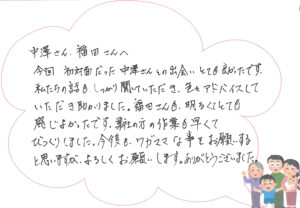 中澤さん、福田さんへ
今回 初対面だった中澤さんとの出会いとても良かったです。
私たちの話もしっかり聞いていただき、色々アドバイスして
いただき助かりました。福田さんも、明るくとても
感じよかったです。業社の方の作業も早くて
びっくりしました。今後も、ワガママな事をお願いする
と思いますが、よろしくお願いします。ありがとうございました。